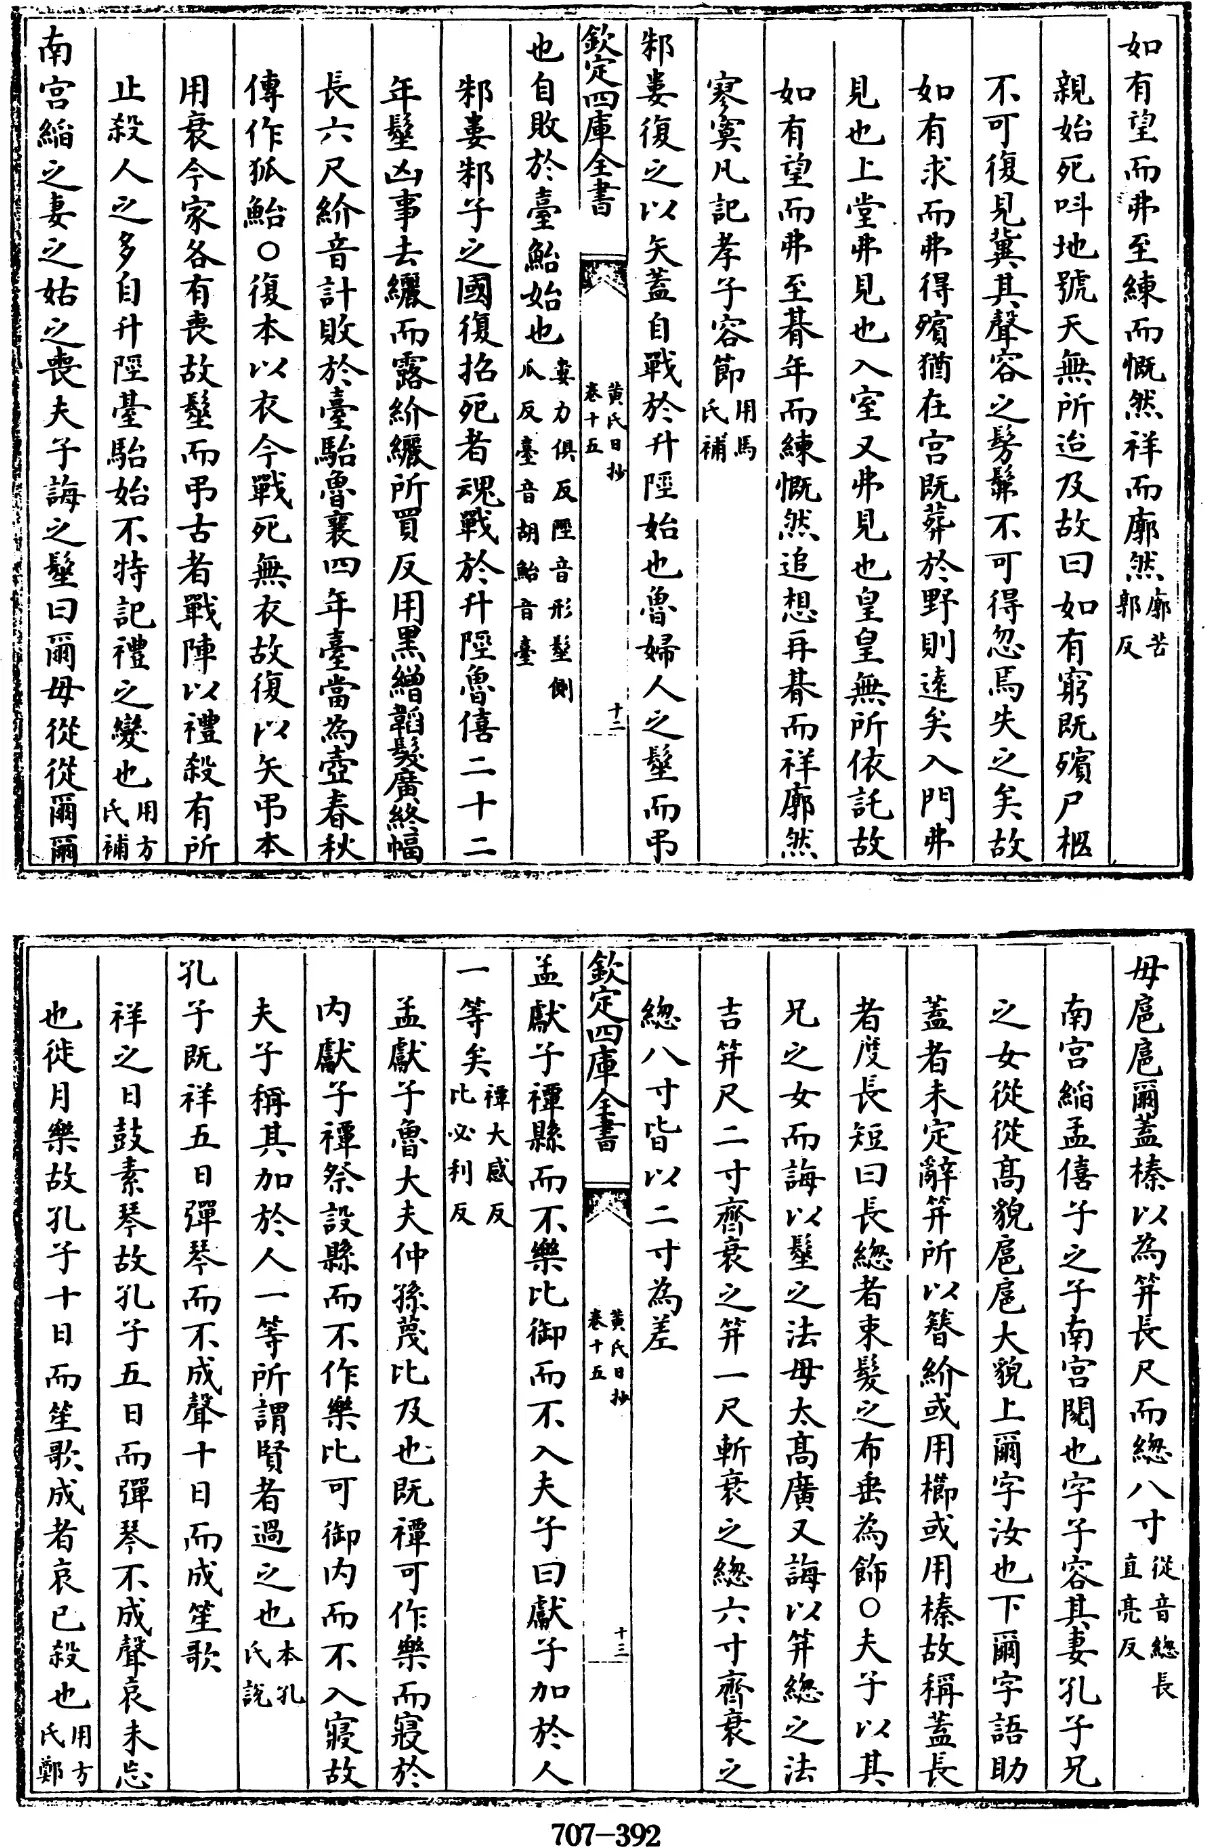 如有望而弗至練而慨然祥而廓然廓苦郭反
親始死呌地號天無所迨及故曰如有窮既殯尸柩
不可復見兾其聲容之髣髴不可得忽焉失之矣故
如有求而弗得殯猶在宫既葬於野則逺矣入門弗
見也上堂弗見也入室又弗見也皇皇無所依託故
如有望而弗至朞年而練慨然追想再朞而祥廓然
寥寞凡記孝子容節用馬氏補
邾婁復之以矢蓋自戰於升陘始也魯婦人之髽而弔
欽定四庫全書
黄氏日抄
卷十五
十二
也自敗於臺鮐始也婁力俱反陘音形髽側瓜反臺音胡鮐音臺
邾婁邾子之國復招死者魂戰於升陘魯僖二十二
年髽凶事去纚而露紒纚所買反用黑繒韜髮廣終幅
長六尺紒音計敗於臺駘魯襄四年臺當為壺春秋
傳作狐鮐○復本以衣今戰死無衣故復以矢弔本
用衰今家各有喪故髽而弔古者戰陣以禮殺有所
止殺人之多自升陘臺駘始不特記禮之變也用方氏補
南宫縚之妻之姑之喪夫子誨之髽曰爾毋從從爾爾
毋扈扈爾蓋榛以為笄長尺而緫八寸從音緫長直亮反
南宫縚孟僖子之子南宫閱也字子容其妻孔子兄
之女從從髙貌扈扈大貌上爾字汝也下爾字語助
蓋者未定辭笄所以簪紒或用櫛或用榛故稱蓋長
者度長短曰長緫者束髮之布垂為飾○夫子以其
兄之女而誨以髽之法毋太髙廣又誨以笄緫之法
吉笄尺二寸齊衰之笄一尺斬衰之緫六寸齊衰之
緫八寸皆以二寸為差
欽定四庫全書
黄氏日抄
卷十五
十三
孟獻子禫縣而不樂比御而不入夫子曰獻子加於人
一等矣禫大感反比必利反
孟獻子魯大夫仲孫蔑比及也既禫可作樂而寢於
内獻子禫祭設縣而不作樂比可御内而不入寢故
夫子稱其加於人一等所謂賢者過之也本孔氏說
孔子既祥五日彈琴而不成聲十日而成笙歌
祥之日鼓素琴故孔子五日而彈琴不成聲哀未忘
也徙月樂故孔子十日而笙歌成者哀已殺也用方氏鄭
707-392